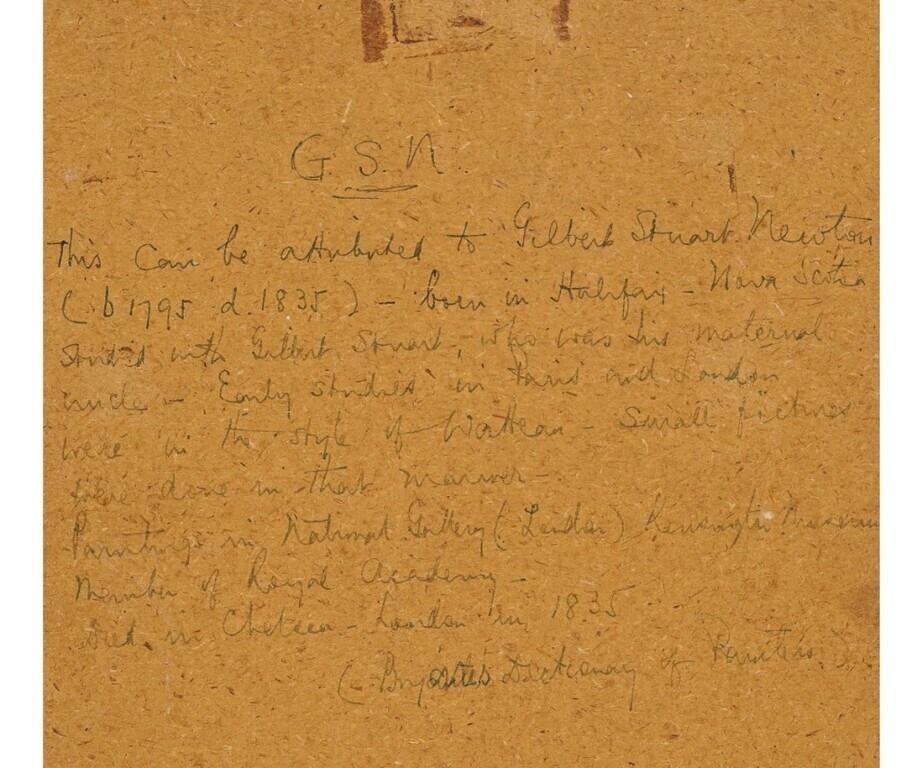 G. S. N.
This can be attributed to Gilbert Stuart Newton
( b 1795 d. 1835 ) – born in Halifax – Nova Scotia
Studied with Gilbert Stuart, who was his maternal
uncle – Early studies in Paris and London
were in the style of Watteau – Small pictures
were done in that manner –
Paintings in National Gallery ( London ) Kensington Museum
Member of Royal Academy –
Died in Chelsea – London in 1835
( Dictionary of Painters )